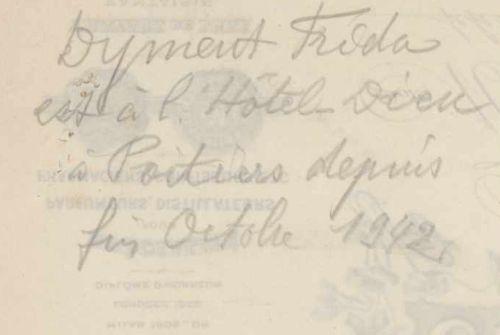 Dyment Fréda
est à l'Hôtel-Dieu
à Poitiers depuis
fin Octobre 1942.